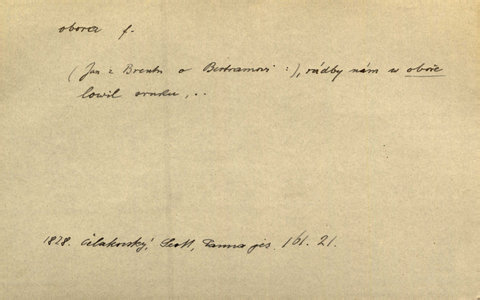 obora f.
(Jan z Brentu o Bertramovi :), rádby nám w oboře
lowil srnku,..
1828. Čelakovský, Scott, Panna jez. 161. 21.